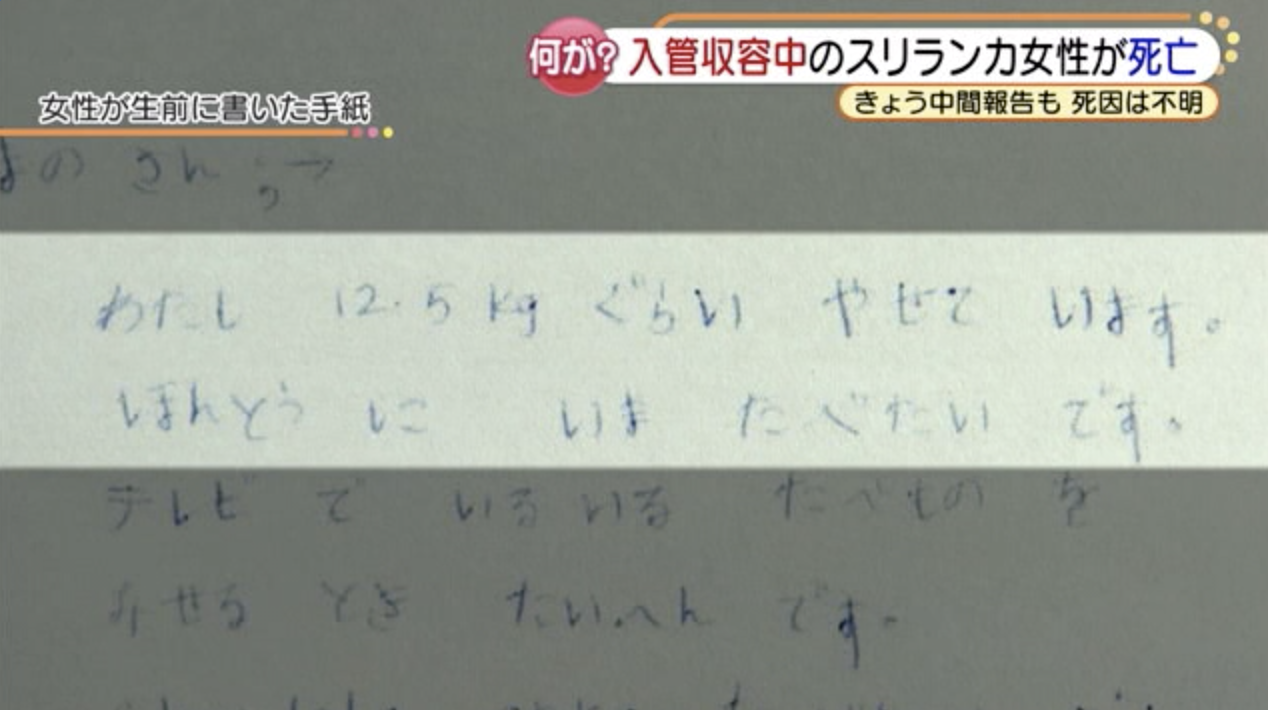 何が?入管収容中のスリランカ女性が死亡
きょう中間報告も 死因は不明
女性が生前に書いた手紙
さん
わたし 12.5kg ぐらい やせて います。
ほんとうに いま たべたい です。
テレビ で いるいる たべもの を
みせる とき たいへん です。